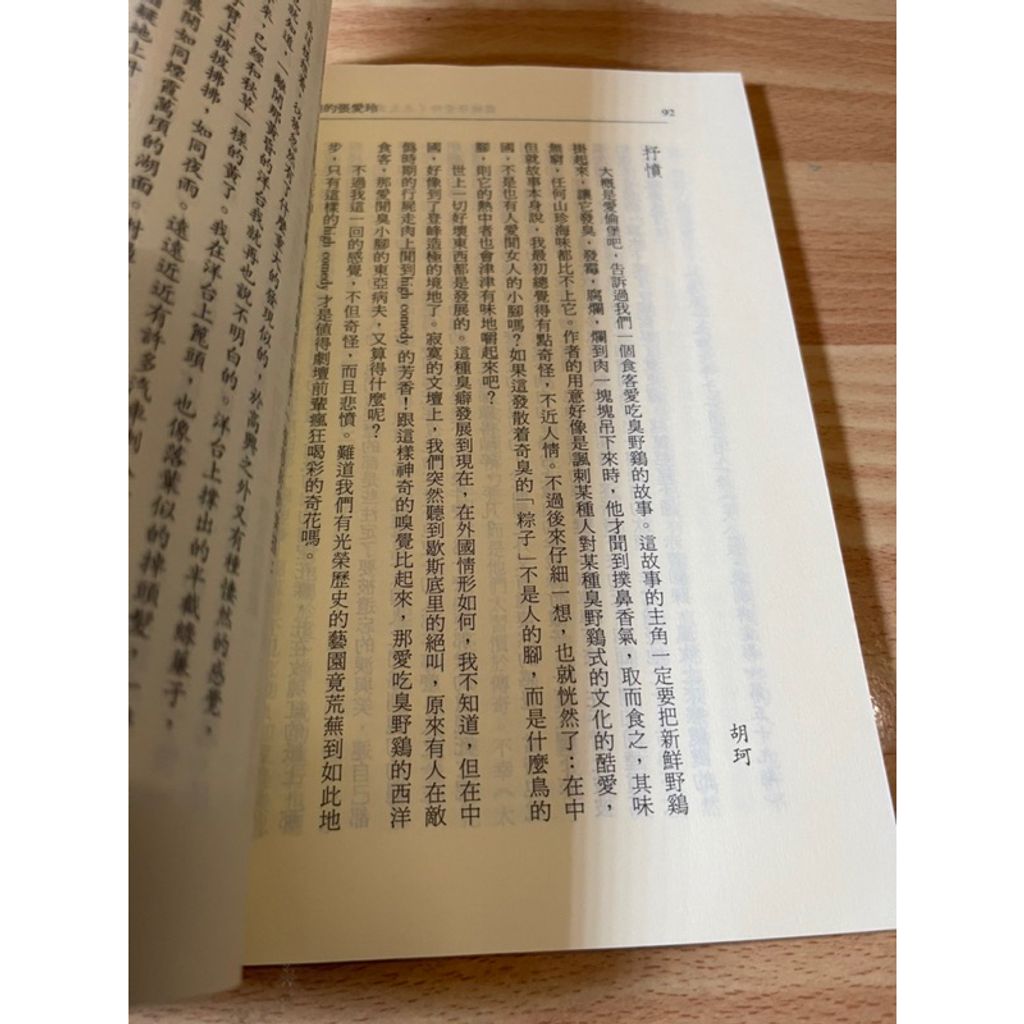 的張愛玲
92
抒憤
胡珂
大概是愛倫堡吧，告訴過我們一個食客愛吃臭野鷄的故事。這故事的主角一定要把新鮮野鷄
掛起來，讓它發臭，發霉，腐爛，爛到肉一塊塊吊下來時，他才聞到撲鼻香氣，取而食之，其味
無窮，任何山珍海味都比不上它。作者的用意好像是諷刺某種人對某種臭野鷄式的文化的酷愛，
但就故事本身說，我最初總覺得有點奇怪，不近人情。不過後來仔細一想，也就恍然了：在中
國，不是也有人愛聞女人的小腳嗎？如果這發散着奇臭的「粽子」不是人的腳，而是什麼鳥的
腳，則它的熱中者也會津津有味地嚼起來吧？
世上一切好壞東西都是發展的。這種臭癖發展到現在，在外國情形如何，我不知道，但在中
國，好像到了登峰造極的境地了。寂寞的文壇上，我們突然聽到歇斯底里的絕叫，原來有人在敵
僞時期的行屍走肉上聞到high comedy 的芳香！跟這樣神奇的嗅覺比起來，那愛吃臭野鷄的西洋
食客，那愛聞臭小腳的東亞病夫，又算得什麼呢？
不過我這一回的感覺，不但奇怪，而且悲憤。難道我們有光榮歷史的藝園竟荒蕪到如此地
步，只有這樣的high comedy 才是値得劇壇前輩瘋狂喝彩的奇花嗎。
有了什麼重大的發現似的，於高興之外又有種悽然的感覺，
知道，一離開那黃昏的洋台我就再也說不明白的。洋台上撐出的半截綠簾子，
來，已經和秋草一樣的黃了。我在洋台上篦頭，也像落葉似的掉頭髮，一
手臂上披披拂拂，如同夜雨。遠遠近近有許多汽車
如同煙霞萬頃的湖面。
地上升